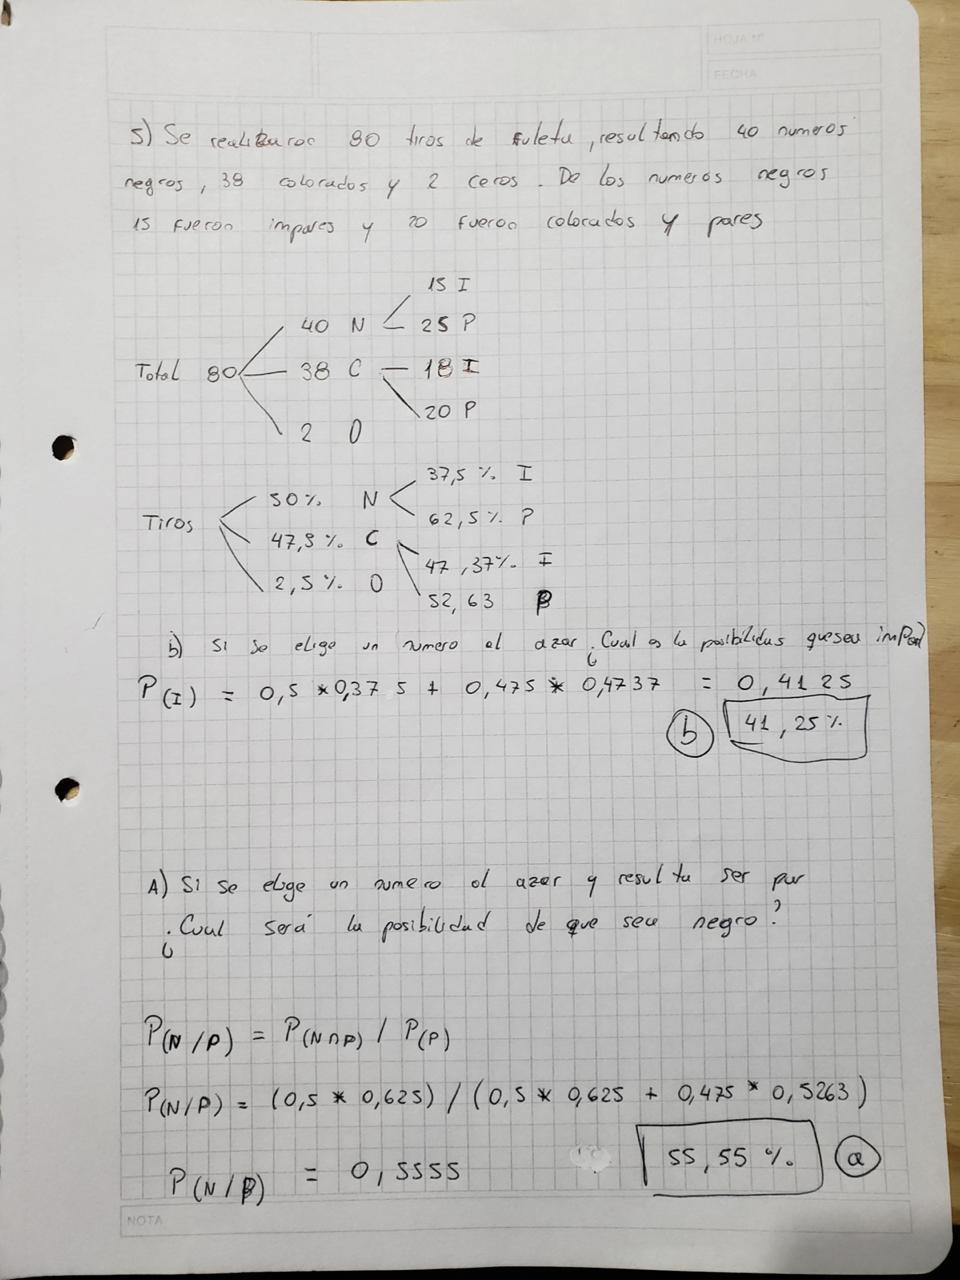 HOJA Nº
FECHA
5) Se realizaron 80 tiros de ruleta, resultando 40 numeros
negros, 38 colorados y 2 ceros. De los numeros negros
15 fueron impares y 20 fueron colorados y pares
15 I
40 N 25 P
Total 80 38 C 18 I
20 P
2 0
37,5 % I
50% N
62,5 % P
Tiros
47,5 % C
47,37% I
2,5 % 0
52,63 P
b) Si se elige un numero al azar ¿Cual es la posibilidas que sea impar)
P(I) = 0,5 * 0,375 + 0,475 * 0,4737 = 0,4125
b 41,25 %
A) Si se elige un numero al azar y resulta ser par
¿Cual será la posibilidad de que sea negro?
P(N/P) = P(N∩P) / P(P)
P(N/P) = (0,5 * 0,625) / (0,5 * 0,625 + 0,475 * 0,5263)
P(N/P) = 0,5555 55,55 % a
NOTA